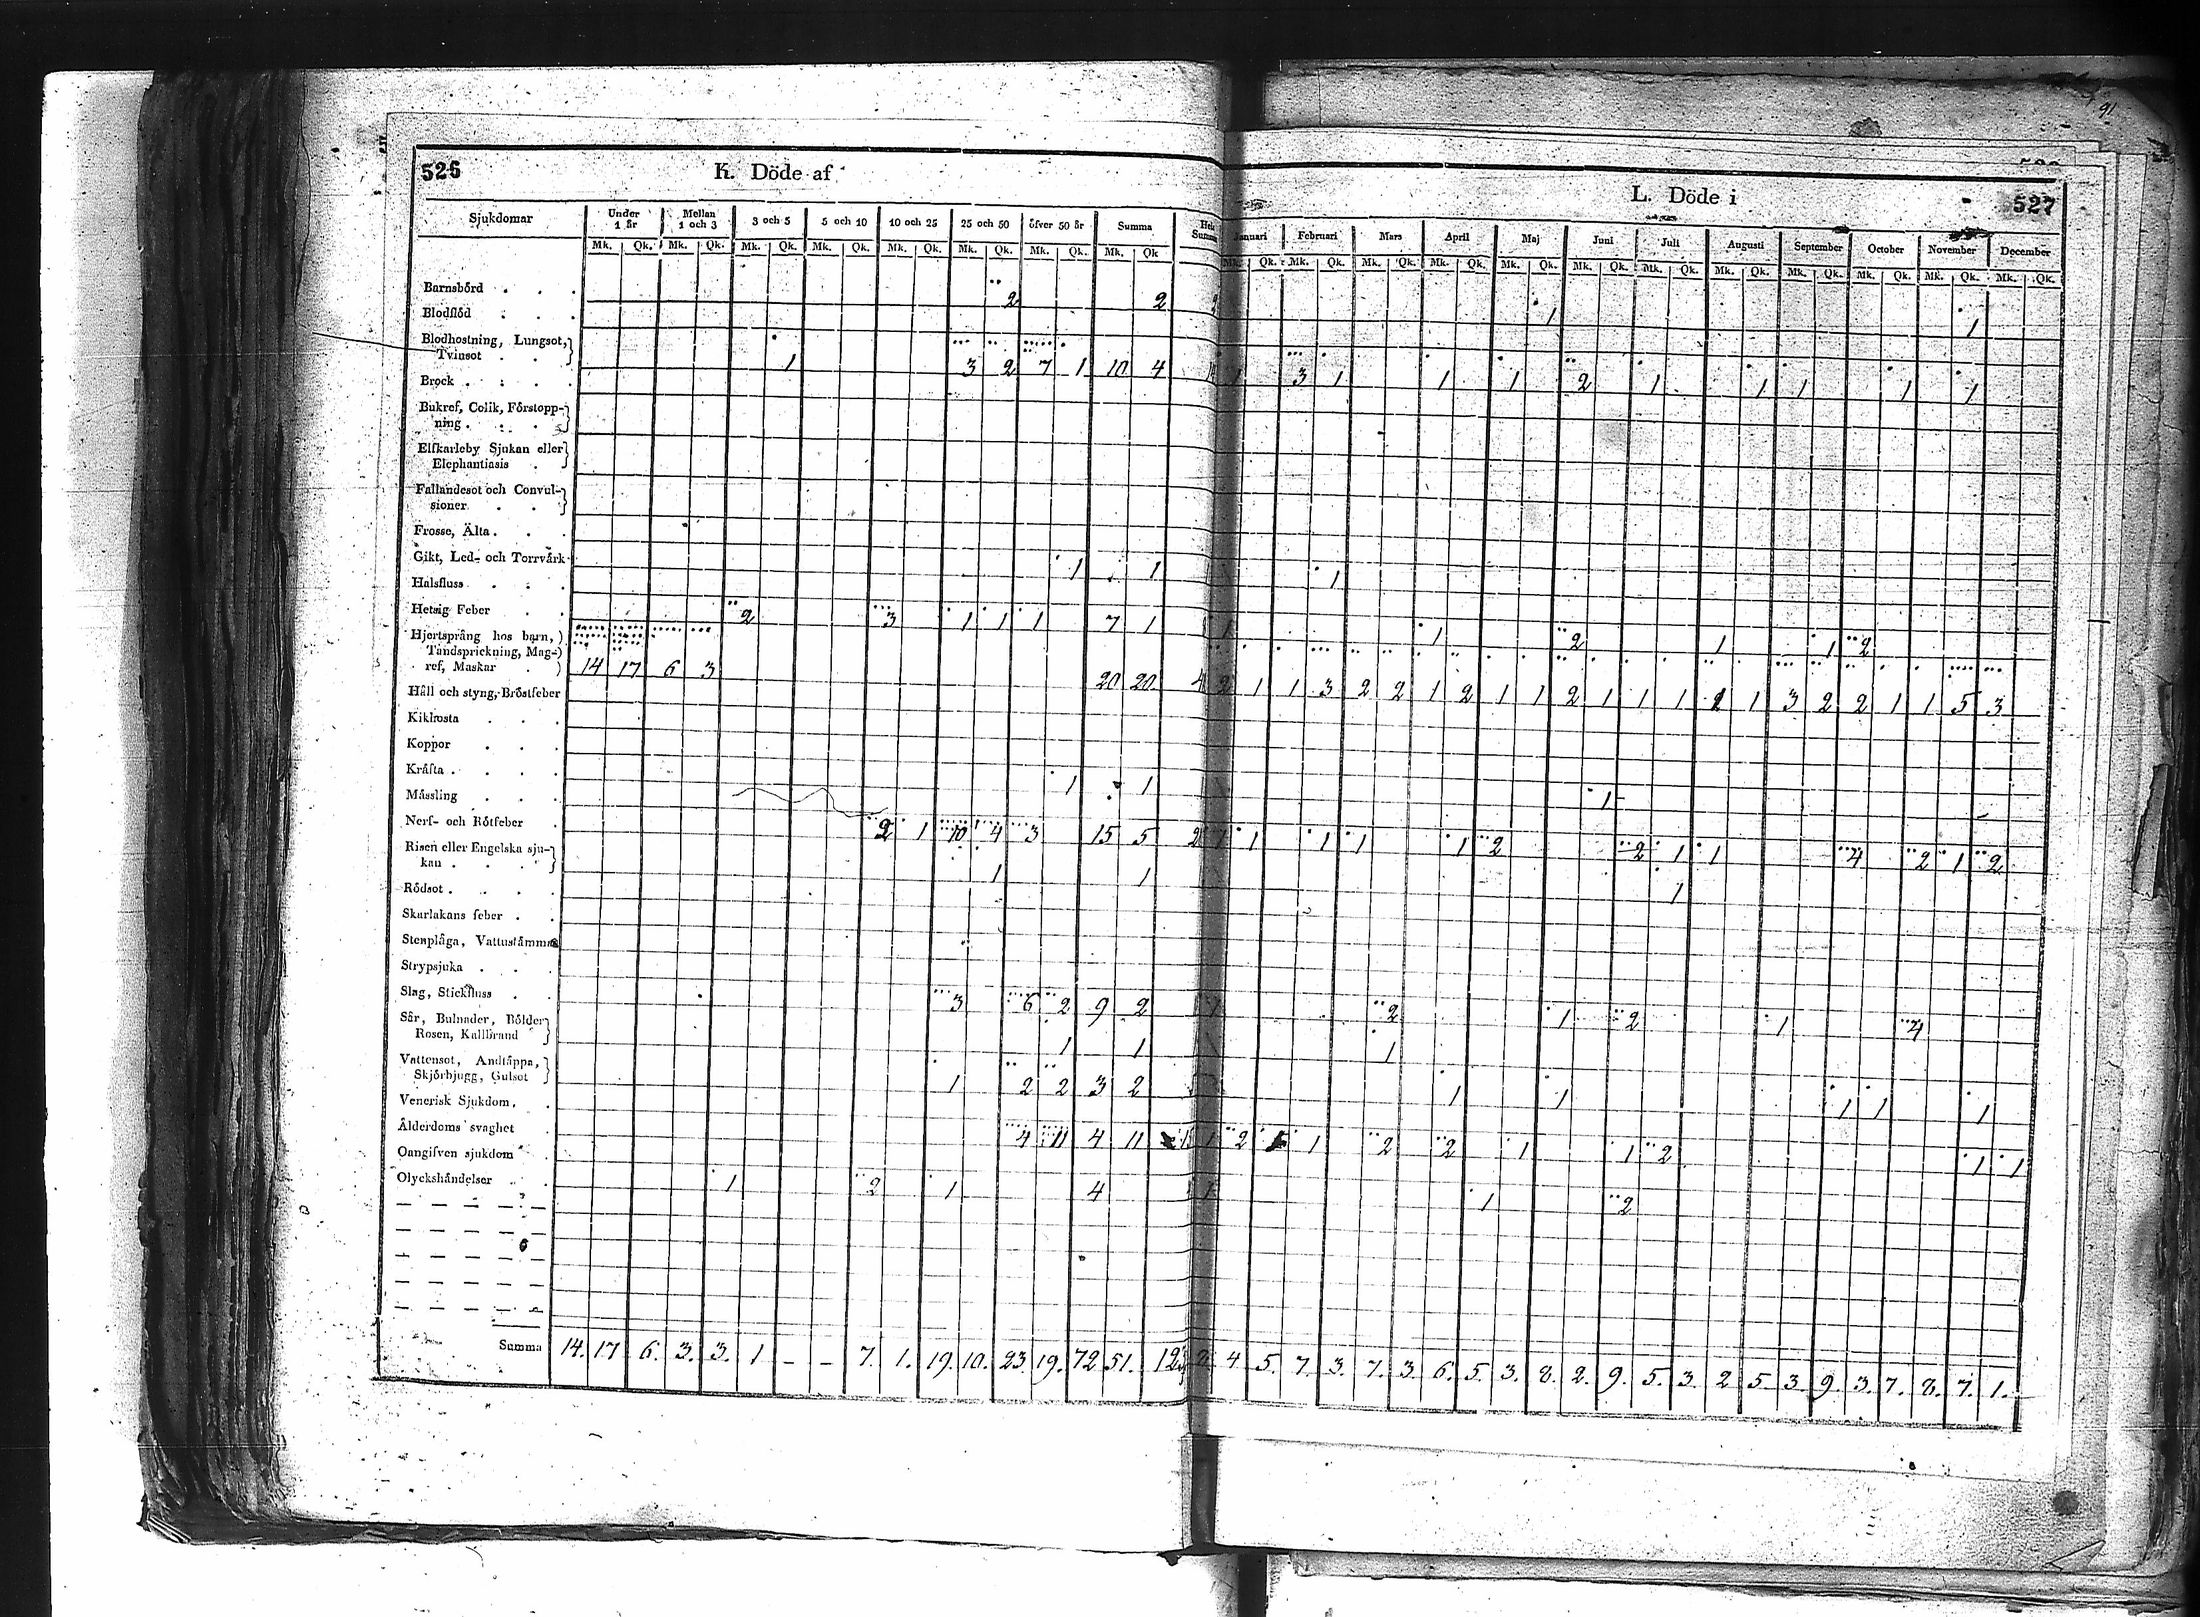 91
526 K. Döde af
Sjukdomar Under 1 år Mellan 1 och 3 3 och 5 5 och 10 10 och 25 25 och 50 öfver 50 år Summa
Mk. Qk. Mk. Qk. Mk. Qk. Mk. Qk. Mk. Qk. Mk. Qk. Mk. Qk. Mk. Qk
Barnsbörd . . . 2 2
Blodflöd . . .
Blodhostning, Lungsot,
Tvinsot . . 1 3 2 7 1 10 4
Brock . . . .
Bukref, Colik, Förstopp-
ning . . .
Elfkarleby Sjukan eller
Elephantiasis .
Fallandesot och Convul-
sioner . .
Frosse, Älta . . .
Gikt, Led- och Torrvärk 1 1
Halsfluss . . .
Hetsig Feber . . 2 3 1 1 1 7 1
Hjertsprång hos barn,
Tandsprickning, Mag-
ref, Maskar . 14 17 6 3 20 20
Håll och styng, Bröstfeber
Kikhosta . . .
Koppor . . .
Kräfta . . . . 1 1
Mässling . . .
Nerf- och Rötfeber . 2 1 10 4 3 15 5
Risen eller Engelska sju-
kan . . . 1 1
Rödsot . . . .
Skarlakans feber . .
Stenplåga, Vattustämma
Strypsjuka . . .
Slag, Stickfluss . . 3 6 2 9 2
Sår, Bulnader, Bölder
Rosen, Kallbrand 1 1
Vattensot, Andtäppa,
Skjörbjugg, Gulsot 1 2 2 3 2
Venerisk Sjukdom . .
Ålderdoms svaghet . 4 11 4 11
Oangifven sjukdom
Olyckshändelser . . 1 2 1 4
Summa 14. 17 6. 3. 3. 1 - - 7. 1. 19. 10. 23. 19. 72 51.
L. Döde i 527
Januari Februari Mars April Maj Juni Juli Augusti September October November December
Mk. Qk. Mk. Qk. Mk. Qk. Mk. Qk. Mk. Qk. Mk. Qk. Mk. Qk. Mk. Qk. Mk. Qk. Mk. Qk. Mk. Qk. Mk. Qk.
1 1
1 3 1 1 1 2 1 1 1 1 1
1
1 1 2 1 1 2
2 1 1 3 2 2 1 2 1 1 2 1 1 1 2 1 3 2 2 1 1 5 3
1
1 1 1 1 1 2 2 1 1 4 2 1 2
1
2 1 2 1 4
1
1 1 1 1 1
1 2 1 2 2 1 1 2 1 1
1 1 2
4. 5. 7. 3. 7. 3. 6. 5. 3. 8. 2. 9. 5. 3. 2 5. 3. 9. 3. 7. 8. 7. 1.